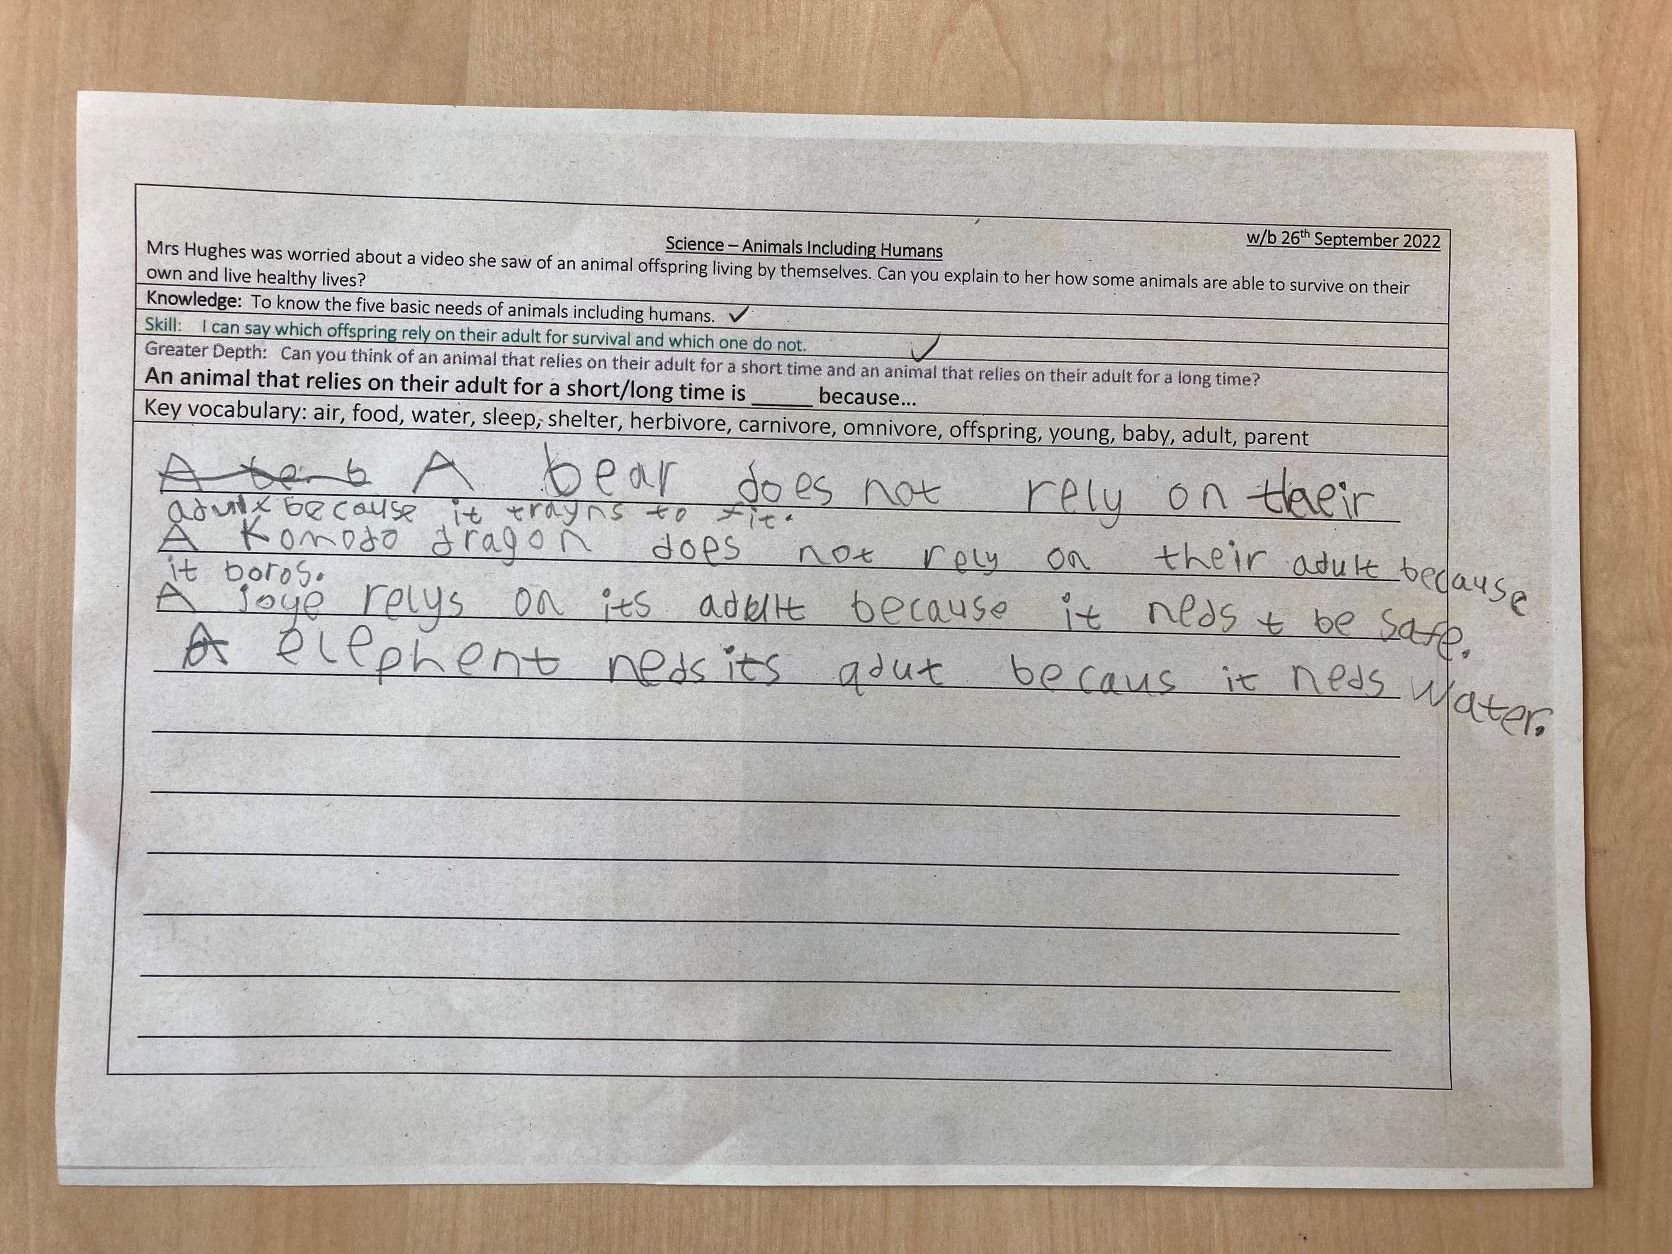 Science – Animals Including Humans
w/b 26th September 2022
Mrs Hughes was worried about a video she saw of an animal offspring living by themselves. Can you explain to her how some animals are able to survive on their
own and live healthy lives?
Knowledge: To know the five basic needs of animals including humans. ✓
Skill: I can say which offspring rely on their adult for survival and which one do not. ✓
Greater Depth: Can you think of an animal that relies on their adult for a short time and an animal that relies on their adult for a long time?
An animal that relies on their adult for a short/long time is _____ because...
Key vocabulary: air, food, water, sleep, shelter, herbivore, carnivore, omnivore, offspring, young, baby, adult, parent
A bear does not rely on their
because it trayns to fit.
A Komodo dragon does not rely on their adult because
it boros.
A joye relys on its adult because it neds t be safe.
A elephent neds its adut becaus it neds water.